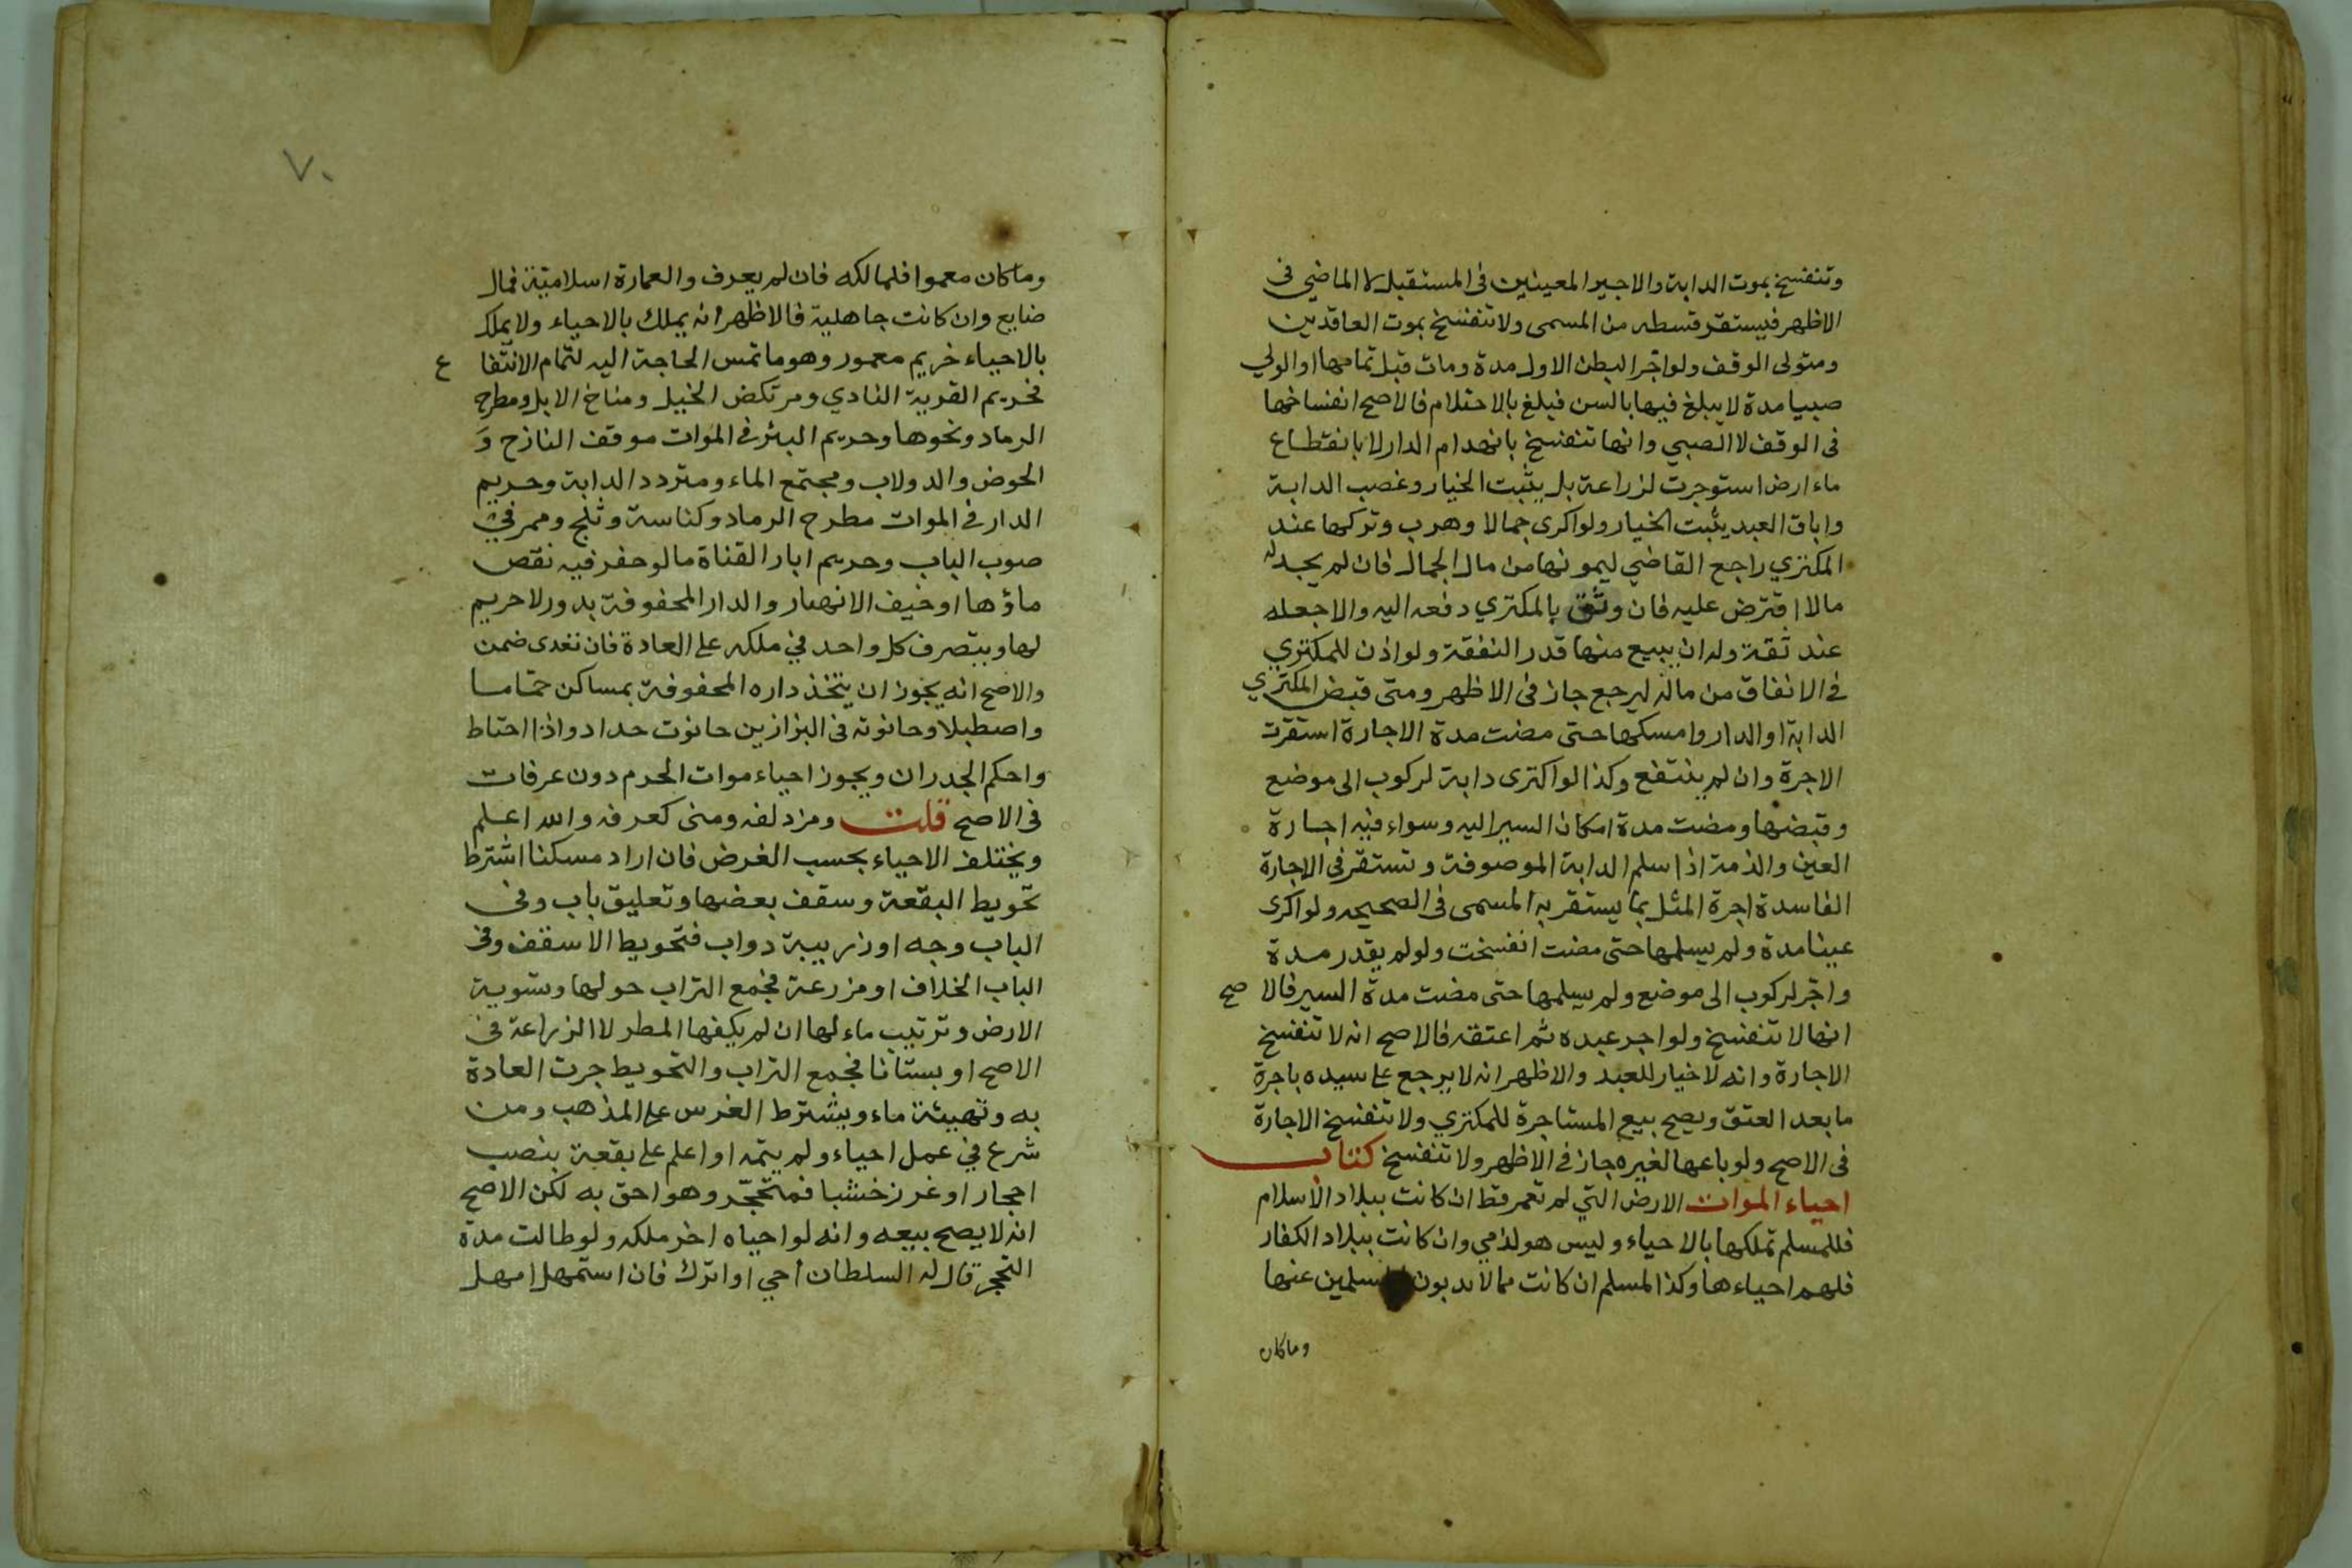 وتنفسخ بموت الدابة والاجير المعينين في المستقبل لا الماضي في
الاظهر فيستقر قسطه من المسمى ولا تنفسخ بموت العاقدين
ومتولى الوقف ولو اجر البطن الاول مدة ومات قبل تمامها او الولي
صبيا مدة لا يبلغ فيها بالسن فبلغ بالاحتلام فالاصح انفساخها
في الوقف لا الصبي وانها تنفسخ بانهدام الدار لا بانقطاع
ماء ارض استوجرت لزراعة بل يثبت الخيار وغصب الدابة
واباق العبد يثبت الخيار ولو اكرى جمالا وهرب وتركها عند
المكتري راجع القاضي ليمونها من مال الجمال فان لم يجد له
مالا اقترض عليه فان وثق بالمكتري دفعه اليه والا جعله
عند ثقة وله ان يبيع منها قدر النفقة ولو اذن للمكتري
في الانفاق من ماله ليرجع جاز في الاظهر ومتى قبض المكتري
الدابة او الدار وامسكها حتى مضت مدة الاجارة استقرت
الاجرة وان لم ينتفع وكذا لو اكترى دابة لركوب الى موضع
وقبضها ومضت مدة امكان السير اليه وسواء فيه اجارة
العين والذمة اذا سلم الدابة الموصوفة وتستقر في الاجارة
الفاسدة اجرة المثل بما يستقر به المسمى في الصحيحه ولو اكرى
عينا مدة ولم يسلمها حتى مضت انفسخت ولو لم يقدر مدة
واجر لركوب الى موضع ولم يسلمها حتى مضت مدة السير فالا صح
انها لا تنفسخ ولو اجر عبده ثم اعتقه فالاصح انه لا تنفسخ
الاجارة وانه لا خيار للعبد والاظهر انه لا يرجع على سيده باجرة
ما بعد العتق ويصح بيع المستاجرة للمكتري ولا تنفسخ الاجارة
في الاصح ولو باعها لغيره جاز في الاظهر ولا تنفسخ كتاب
احياء الموات الارض التي لم تعمر قط ان كانت ببلاد الاسلام
فللمسلم تملكها بالاحياء وليس هو لذمي وان كانت ببلاد الكفار
فلهم احياءها وكذا المسلم ان كانت مما لا يدبون المسلمين عنها
وماكان
٧٠
وماكان معموا فلمالكه فان لم يعرف والعمارة اسلامية فمال
ضايع وان كانت جاهلية فالاظهر انه يملك بالاحياء ولا يملك
بالاحياء خريم معمور وهو ما تمس الحاجة اليه لتمام الانتفا ع
فحريم القرية النادي ومرتكض الخيل ومناخ الابل ومطرح
الرماد ونحوها وحريم البئر في الموات موقف النازح وَ
الحوض والدولاب ومجتمع الماء ومتردد الدابة وحريم
الدار في الموات مطرح الرماد وكناسة وثلج وممر في
صوب الباب وحريم ابار القناة ما لو حفر فيه نقص
ماؤها او خيف الانهيار والدار المحفوفة بدور لا حريم
لها ويتصرف كل واحد في ملكه على العادة فان تعدى ضمن
والاصح انه يجوز ان يتخذ داره المحفوفة بمساكن حماما
واصطبلا وحانوته في البزازين حانوت حداد واذا احتاط
واحكم الجدران ويجوز احياء موات الحرم دون عرفات
في الاصح قلت ومزدلفه ومنى كعرفه والله اعلم
ويختلف الاحياء بحسب الغرض فان اراد مسكنا اشترط
تحويط البقعة وسقف بعضها وتعليق باب وفي
الباب وجه او زريبة دواب فتحويط الا سقف وفي
الباب الخلاف او مزرعة فجمع التراب حولها وتسوية
الارض وترتيب ماء لها ان لم يكفها المطر لا الزراعة في
الاصح او بستانا فجمع التراب والتحويط جرت العادة
به وتهيئة ماء ويشترط الغرس على المذهب ومن
شرع في عمل احياء ولم يتمه او اعلم على بقعة بنصب
احجار او غرز خشبا فمتحجر وهو احق به لكن الاصح
انه لا يصح بيعه وانه لو احياه اخر ملكه ولو طالت مدة
التحجر قال له السلطان احي او اترك فان استمهل امهل